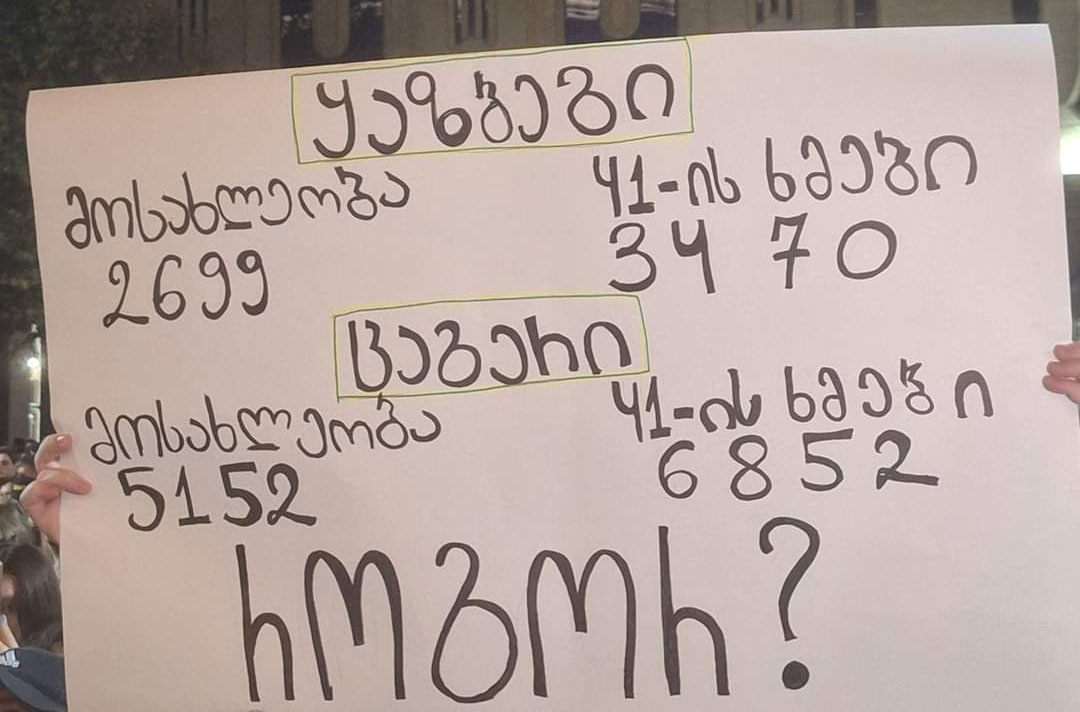 ყაზბეგი
მოსახლეობა 41-ის ხმები
2699 3470
ცაგერი
მოსახლეობა 41-ის ხმები
5152 6852
როგორ?